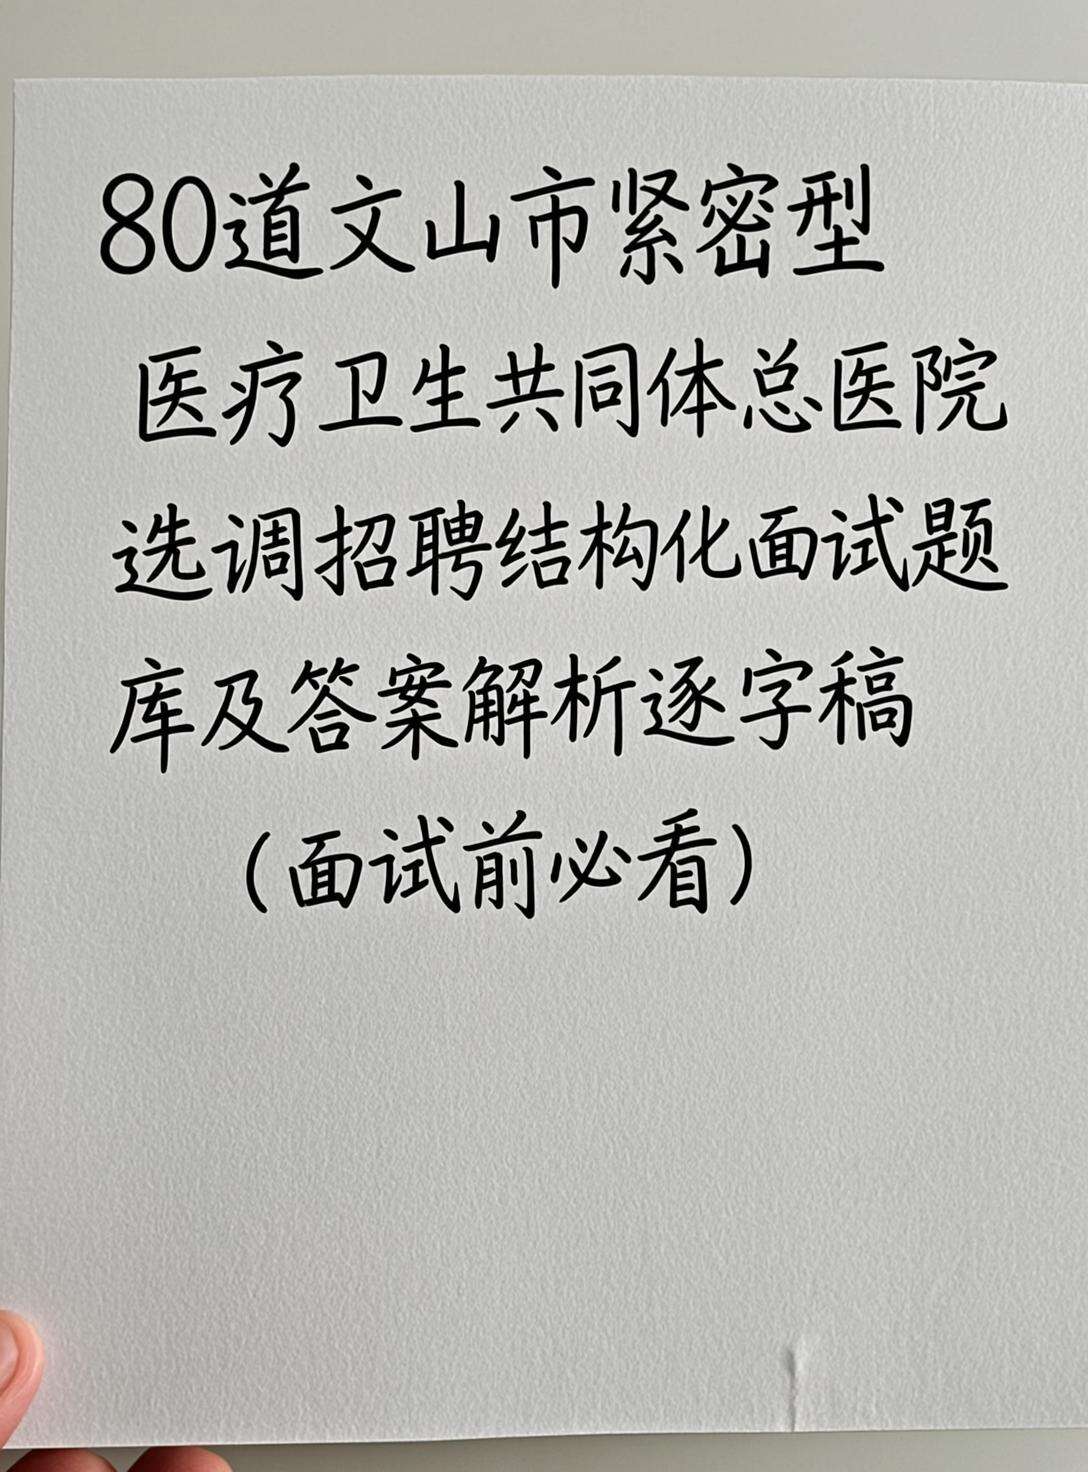 80道文山市紧密型
医疗卫生共同体总医院
选调招聘结构化面试题
库及答案解析逐字稿
（面试前必看）